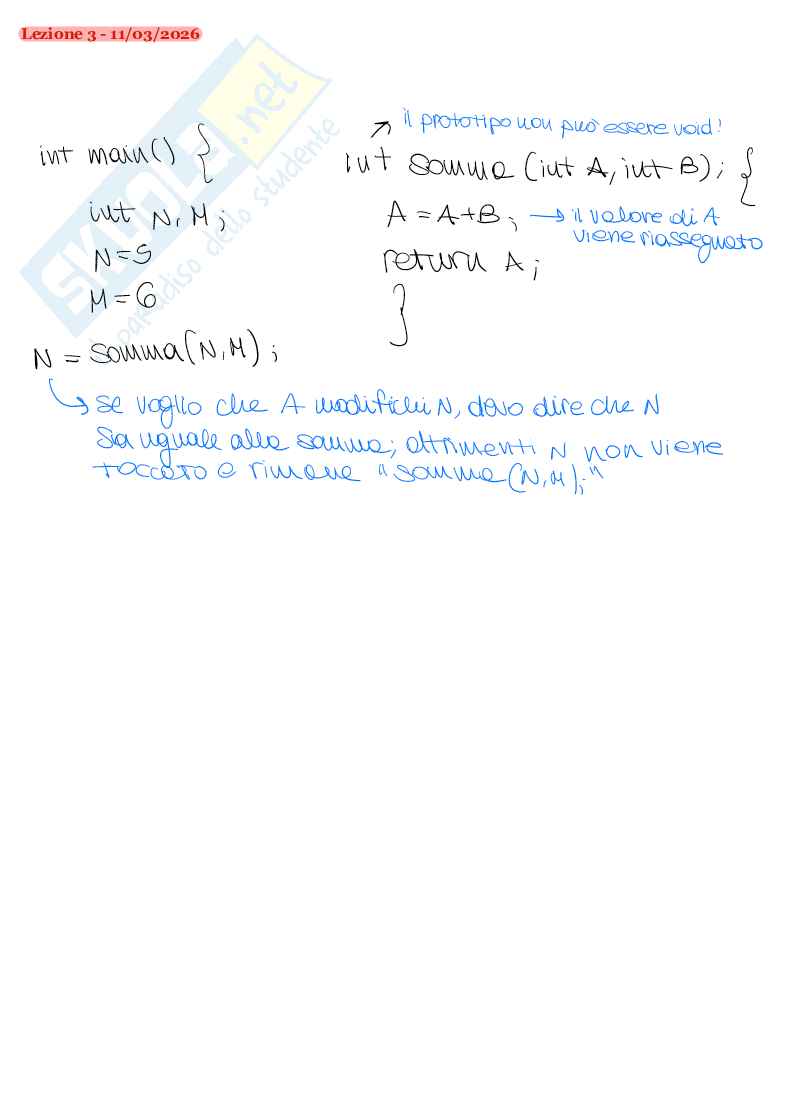 Lezione 3 - 11/03/2026
SKUOLA.net
paradiso dello studente
int main() {
int N, M;
N=5
M=6
N = somma(N,M);
il prototipo non può essere void!
int somma (int A, int B); {
A = A+B; → il valore di A
viene riassegnato
return A;
}
se voglio che A modifichi N, devo dire che N
sia uguale alla somma; altrimenti N non viene
toccato e rimane "somma(N,M);"